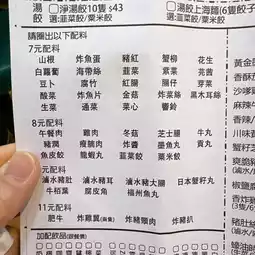 湯餃
淨湯餃10隻 $43
選:韮菜餃/粟米餃
湯餃上海麵(6隻餃子
選:韮菜餃/粟米餃
請圈出以下配料
7元配料
山根 炸魚蛋 豬紅 蟹柳 花生
白蘿蔔 海帶絲 韮菜 紫菜 芫茜
豆卜 腐竹 紅腸 腸仔 芽菜
魚片 魚蛋 金菇 炸菜絲 黑木耳絲
生菜 通菜 菜心 響鈴
8元配料
午餐肉 雞肉 冬菇 芝士腸 牛丸
豬潤 瘦腩肉 炸醬 墨魚丸 貢丸
魚皮餃 龍蝦丸 韮菜餃 粟米餃
元配料
滷水豬肚 滷水雞 滷水豬大腸 日本蟹籽丸
牛栢葉 腐皮角 福州魚丸
11元配料
肥牛 炸雞翼 炸豬頸肉 炸豬扒
加配飲品
黃金
香
沙嗲
香辣
川味
蟹籽
香爽
椒鹽
香炸
(3隻
豬肚
(6隻